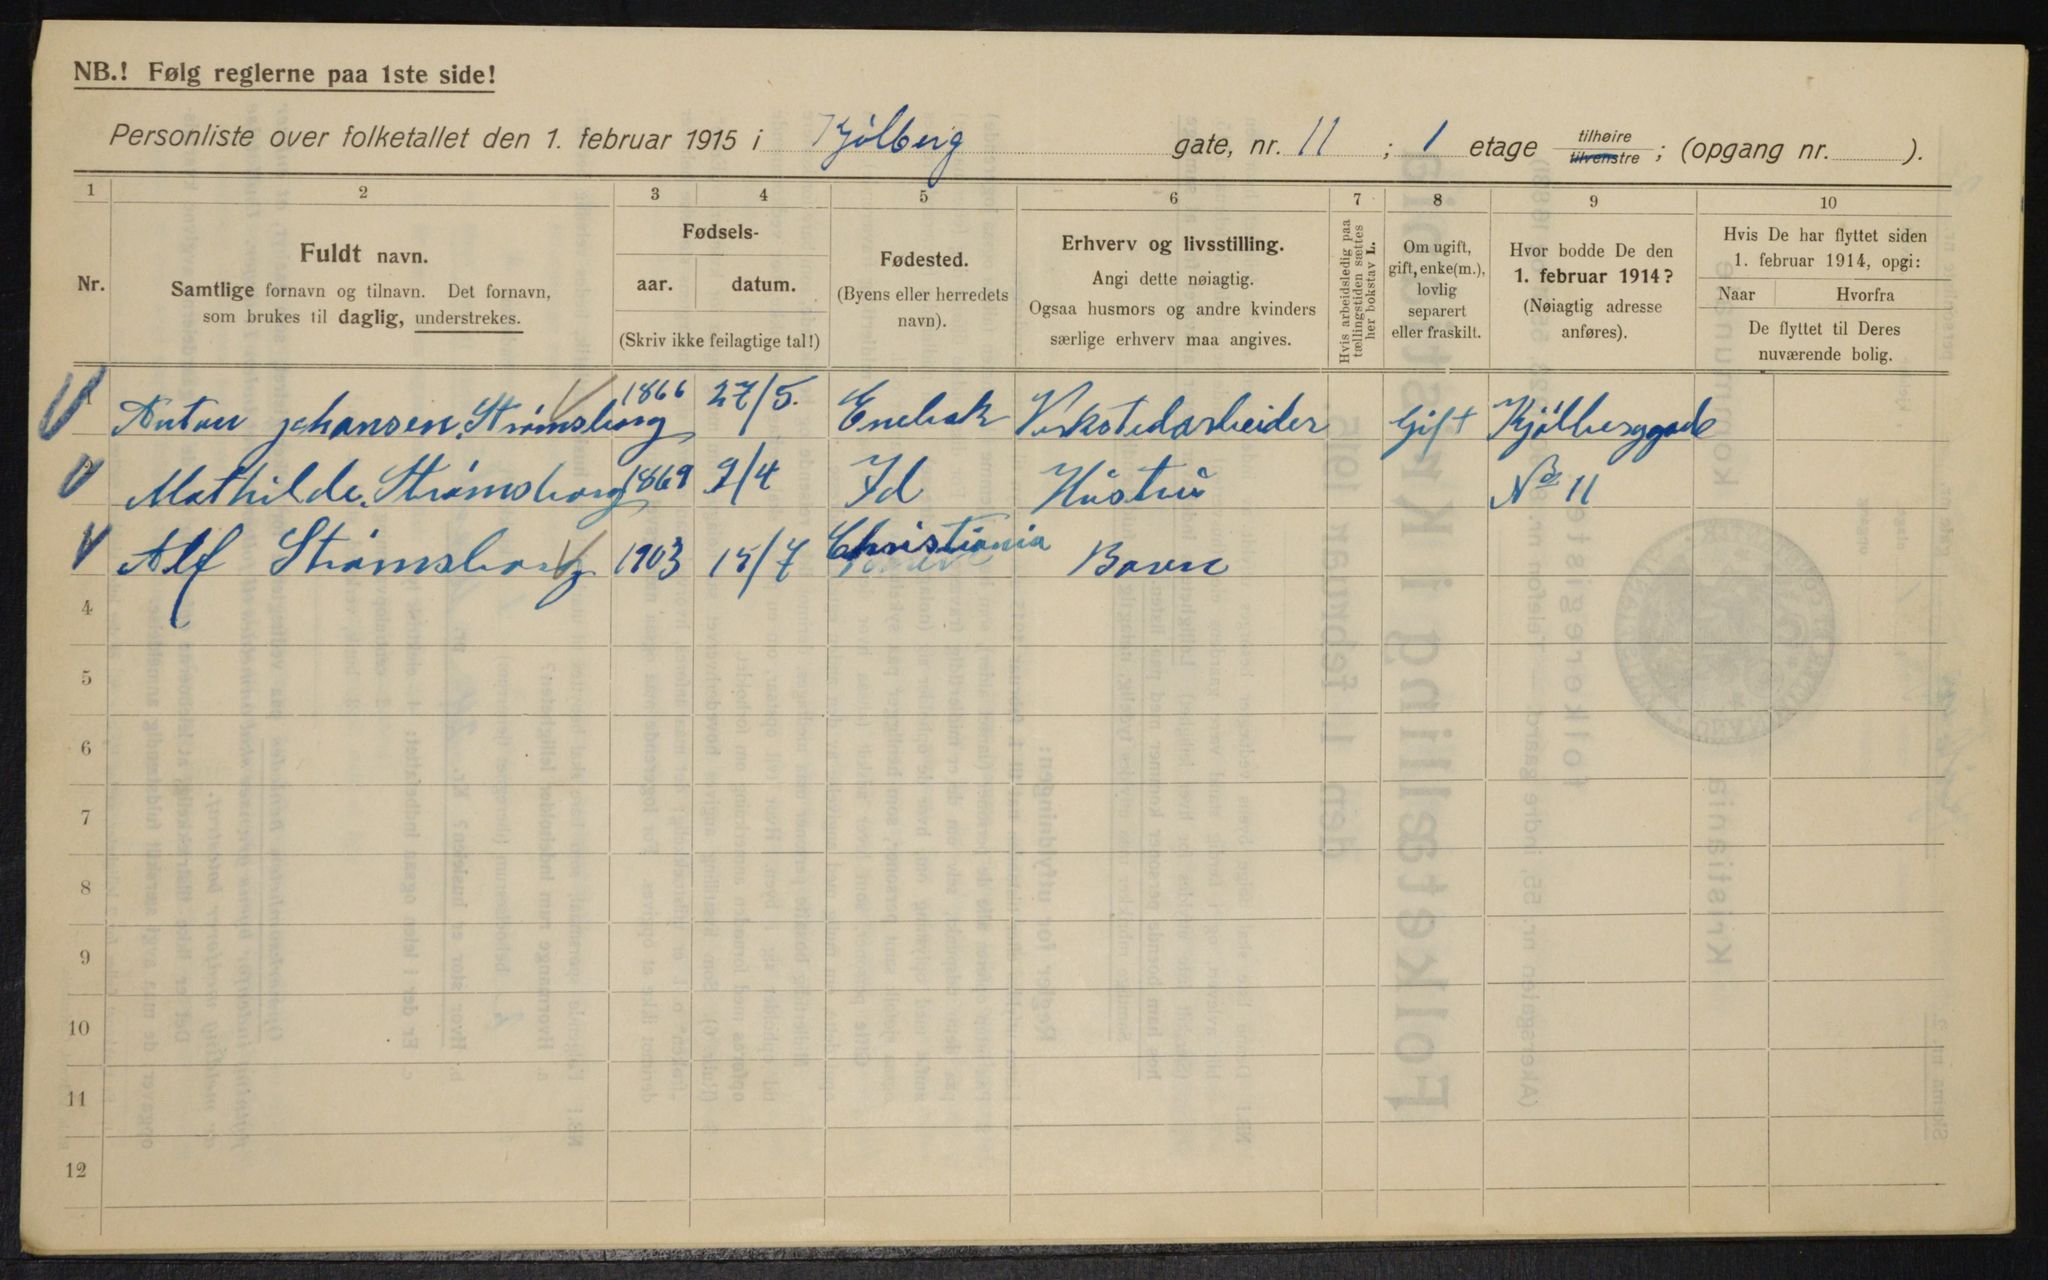 NB.! Følg reglerne paa 1ste side!
Personliste over folketallet den 1. februar 1915 i Kjølberg gate, nr. 11 ; 1 etage tilhøire tilvenstre ; (opgang nr. ).
1 2 3 4 5 6 7 8 9 10
Nr.
Fuldt navn.
Samtlige fornavn og tilnavn. Det fornavn,
som brukes til daglig, understrekes.
Fødsels-
aar. datum.
(Skriv ikke feilagtige tal!)
Fødested.
(Byens eller herredets
navn).
Erhverv og livsstilling.
Angi dette nøiagtig.
Ogsaa husmors og andre kvinders
særlige erhverv maa angives.
Hvis arbeidsledig paa
tællingstiden sættes
her bokstav L.
Om ugift,
gift, enke(m.),
lovlig
separert
eller fraskilt.
Hvor bodde De den
1. februar 1914?
(Nøiagtig adresse
anføres).
Hvis De har flyttet siden
1. februar 1914, opgi:
Naar Hvorfra
De flyttet til Deres
nuværende bolig.
1 Anton Johansen Strømsborg 1866 27/5. Enebak Verkstedarbeider Gift Kjølberggade
2 Mathilde Strømsborg 1869 9/4 Id Hustru No 11
Alf Strømsborg 1903 15/7 Christiania Barn
4
5
6
7
8
9
10
11
12